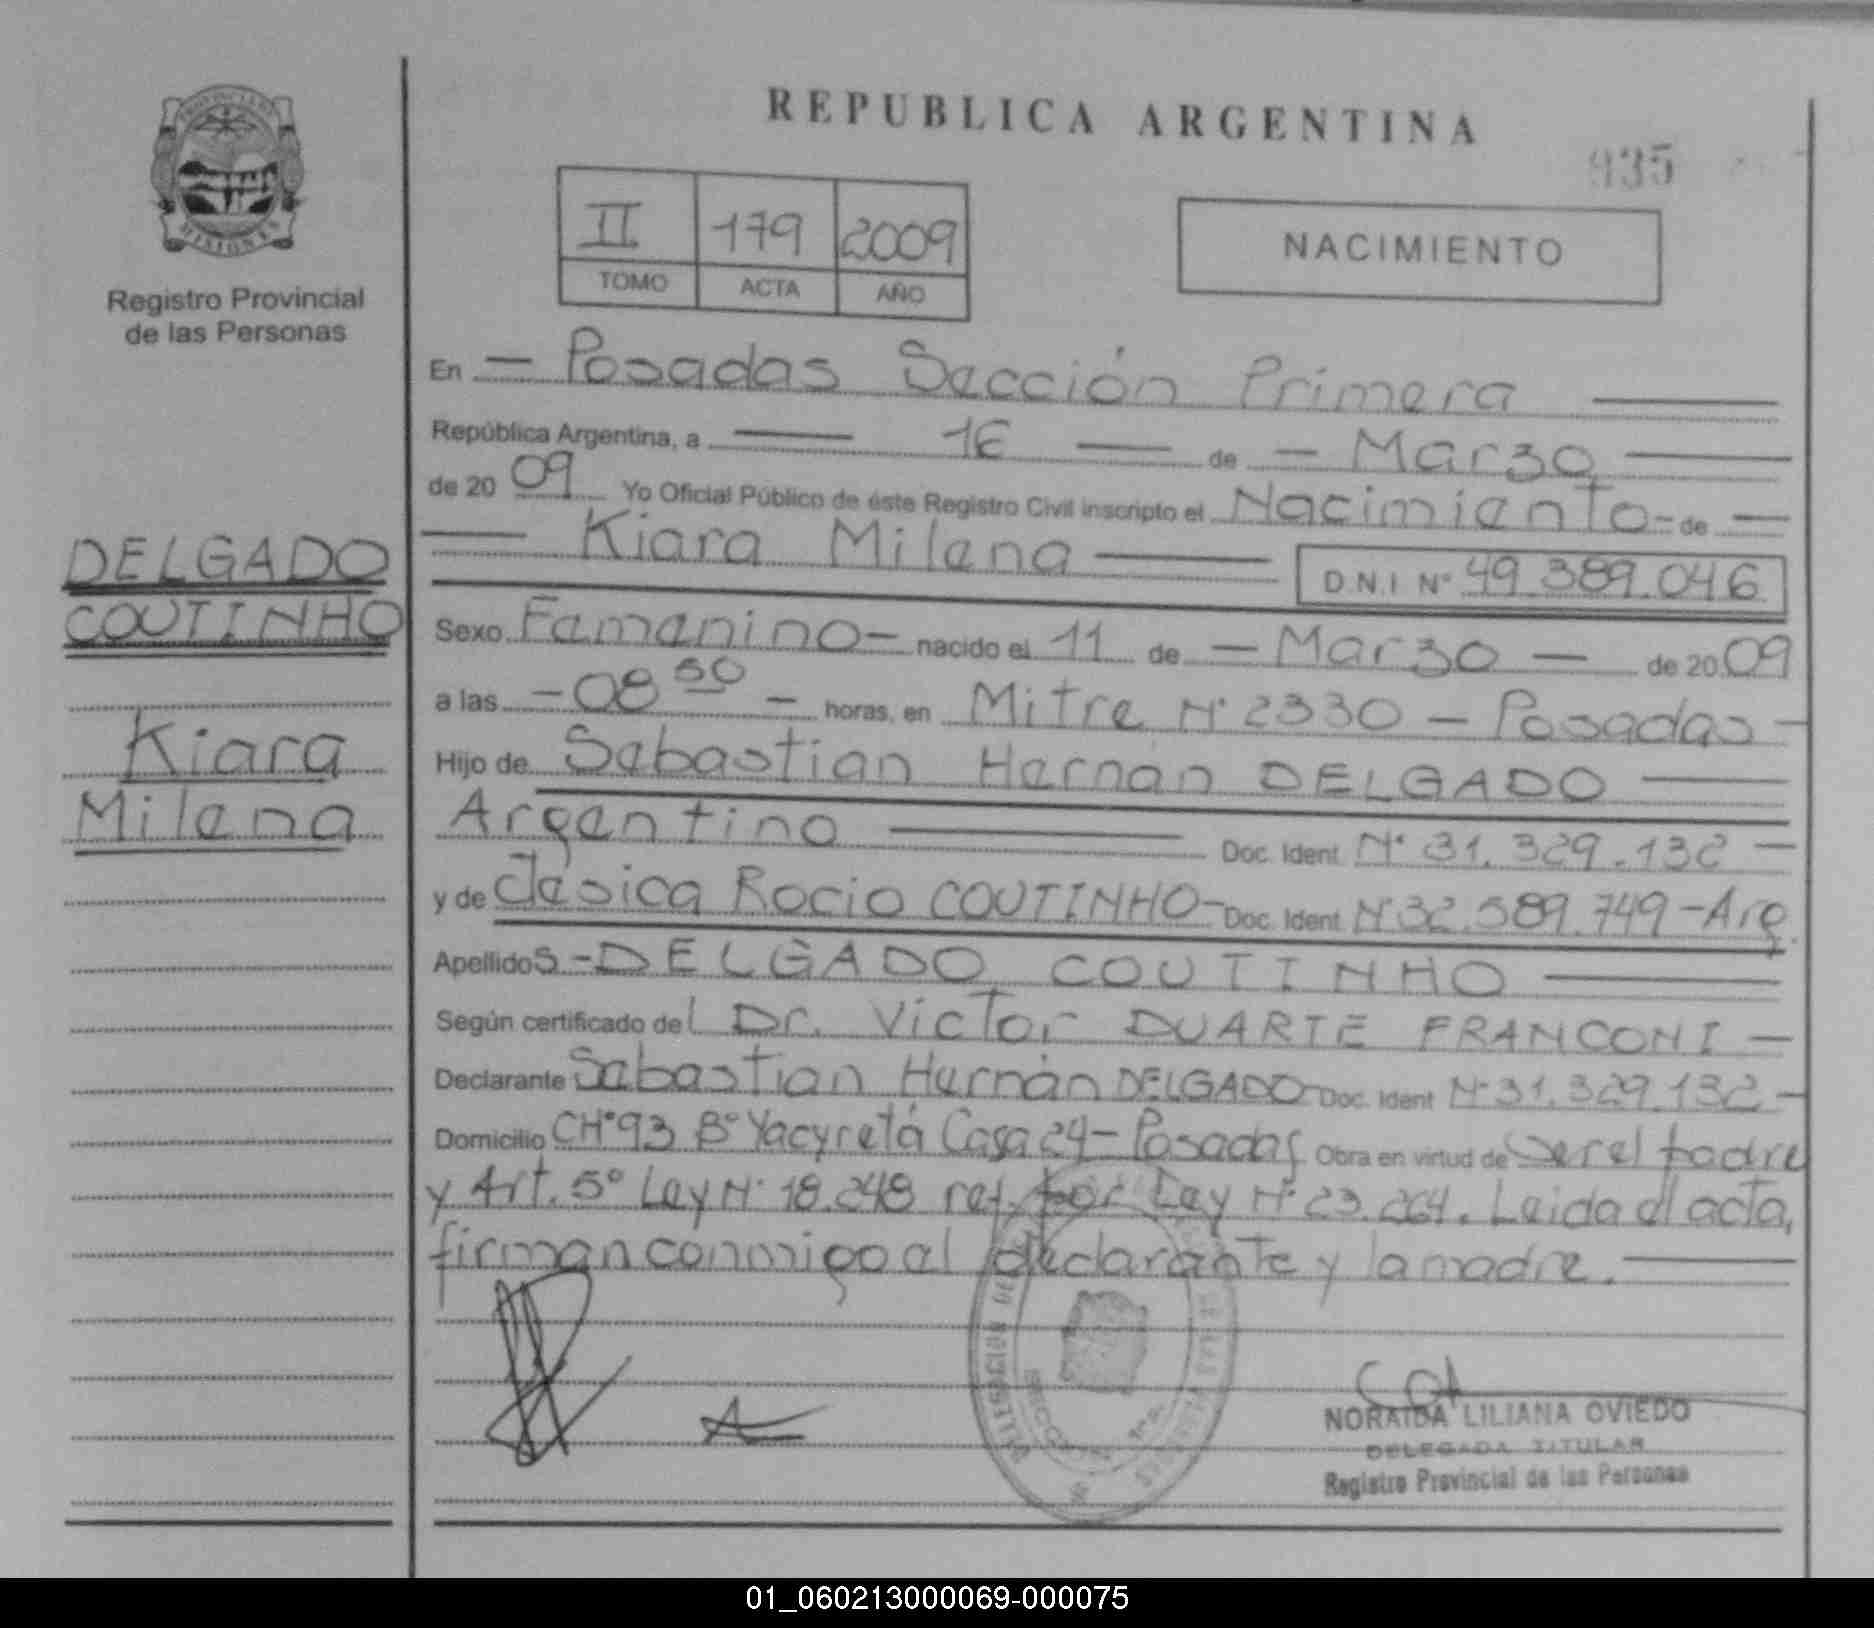 REPUBLICA ARGENTINA
935
PROVINCIA DE
MISIONES
Registro Provincial
de las Personas
II 179 2009
TOMO ACTA AÑO
NACIMIENTO
En — Posadas Sección Primera —
República Argentina, a — 16 — de — Marzo —
de 20 09 Yo Oficial Público de éste Registro Civil inscripto el Nacimiento - de —
— Kiara Milena — D.N.I Nº 49.389.046
DELGADO
COUTINHO
Kiara
Milena
Sexo Femenino - nacido el 11 de — Marzo — de 20 09
a las - 08 50 - horas, en Mitre Nº 2330 - Posadas -
Hijo de Sebastian Hernán DELGADO —
Argentino — Doc. Ident. Nº 31.329.132 —
y de Jésica Rocio COUTINHO - Doc. Ident. Nº 32.589.749 - Arg.
Apellidos - DELGADO COUTINHO —
Según certificado del Dr. Victor DUARTE FRANCONI —
Declarante Sebastian Hernán DELGADO Doc. Ident Nº 31.329.132 -
Domicilio CHº 93 Bº Yacyretá Casa 24 - Posadas Obra en virtud de ser el padre
y Art. 5º Ley Nº 18.248 ref. por Ley Nº 23.264. Leida el acta,
firman conmigo el declarante y la madre. —
NORAIDA LILIANA OVIEDO
DELEGADA TITULAR
Registro Provincial de las Personas
01_060213000069-000075